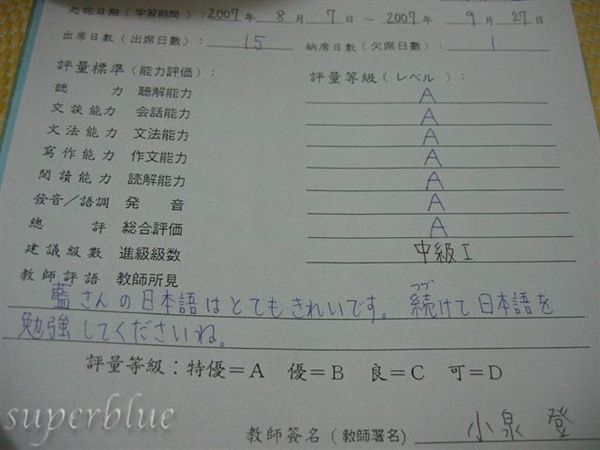 起訖日期(学習期間):2007年8月7日～2007年9月27日
出席日數(出席日數):15 缺席日数(欠席日数):1
評量標準(能力評価): 評量等級(レベル):
聽力 聴解能力 A
交談能力 会話能力 A
文法能力 文法能力 A
寫作能力 作文能力 A
閱讀能力 読解能力 A
發音/語調 発音 A
總評 総合評価 A
建議級數 進級級数 中級I
教師評語 教師所見
つづ
藍さんの日本語はとてもきれいです。続けて日本語を
勉強してくださいね。
評量等級:特優=A 優=B 良=C 可=D
教師簽名(教師署名) 小泉 登
superblue